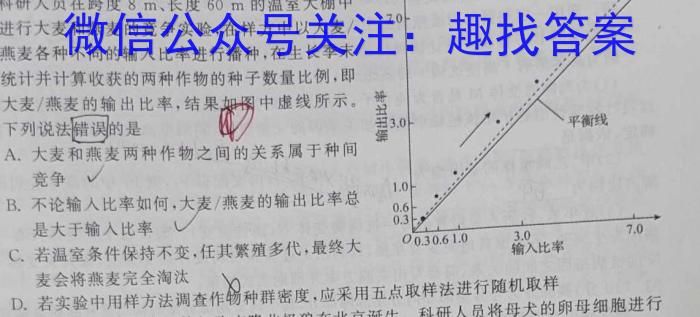 科研人员在跨度 8 m、长度 60 m 的温室大棚中
进行大麦和燕麦的竞争实验,在样方中以大麦/
微信公众号关注：趣找答案
燕麦各种不同的输入比率进行播种,在生长季末
统计并计算收获的两种作物的种子数量比例,即
大麦/燕麦的输出比率,结果如图中虚线所示。
下列说法错误的是
A. 大麦和燕麦两种作物之间的关系属于种间
竞争
B. 不论输入比率如何,大麦/燕麦的输出比率总
是大于输入比率
C. 若温室条件保持不变,任其繁殖多代,最终大
麦会将燕麦完全淘汰
D. 若实验中用样方法调查作物种群密度,应采用五点取样法进行随机取样
7.0
输出比率
3.0
平衡线
1.0
0.6
0.3
O 0.3 0.6 1.0 3.0 7.0
输入比率
科研人员将母犬的卵母细胞进行